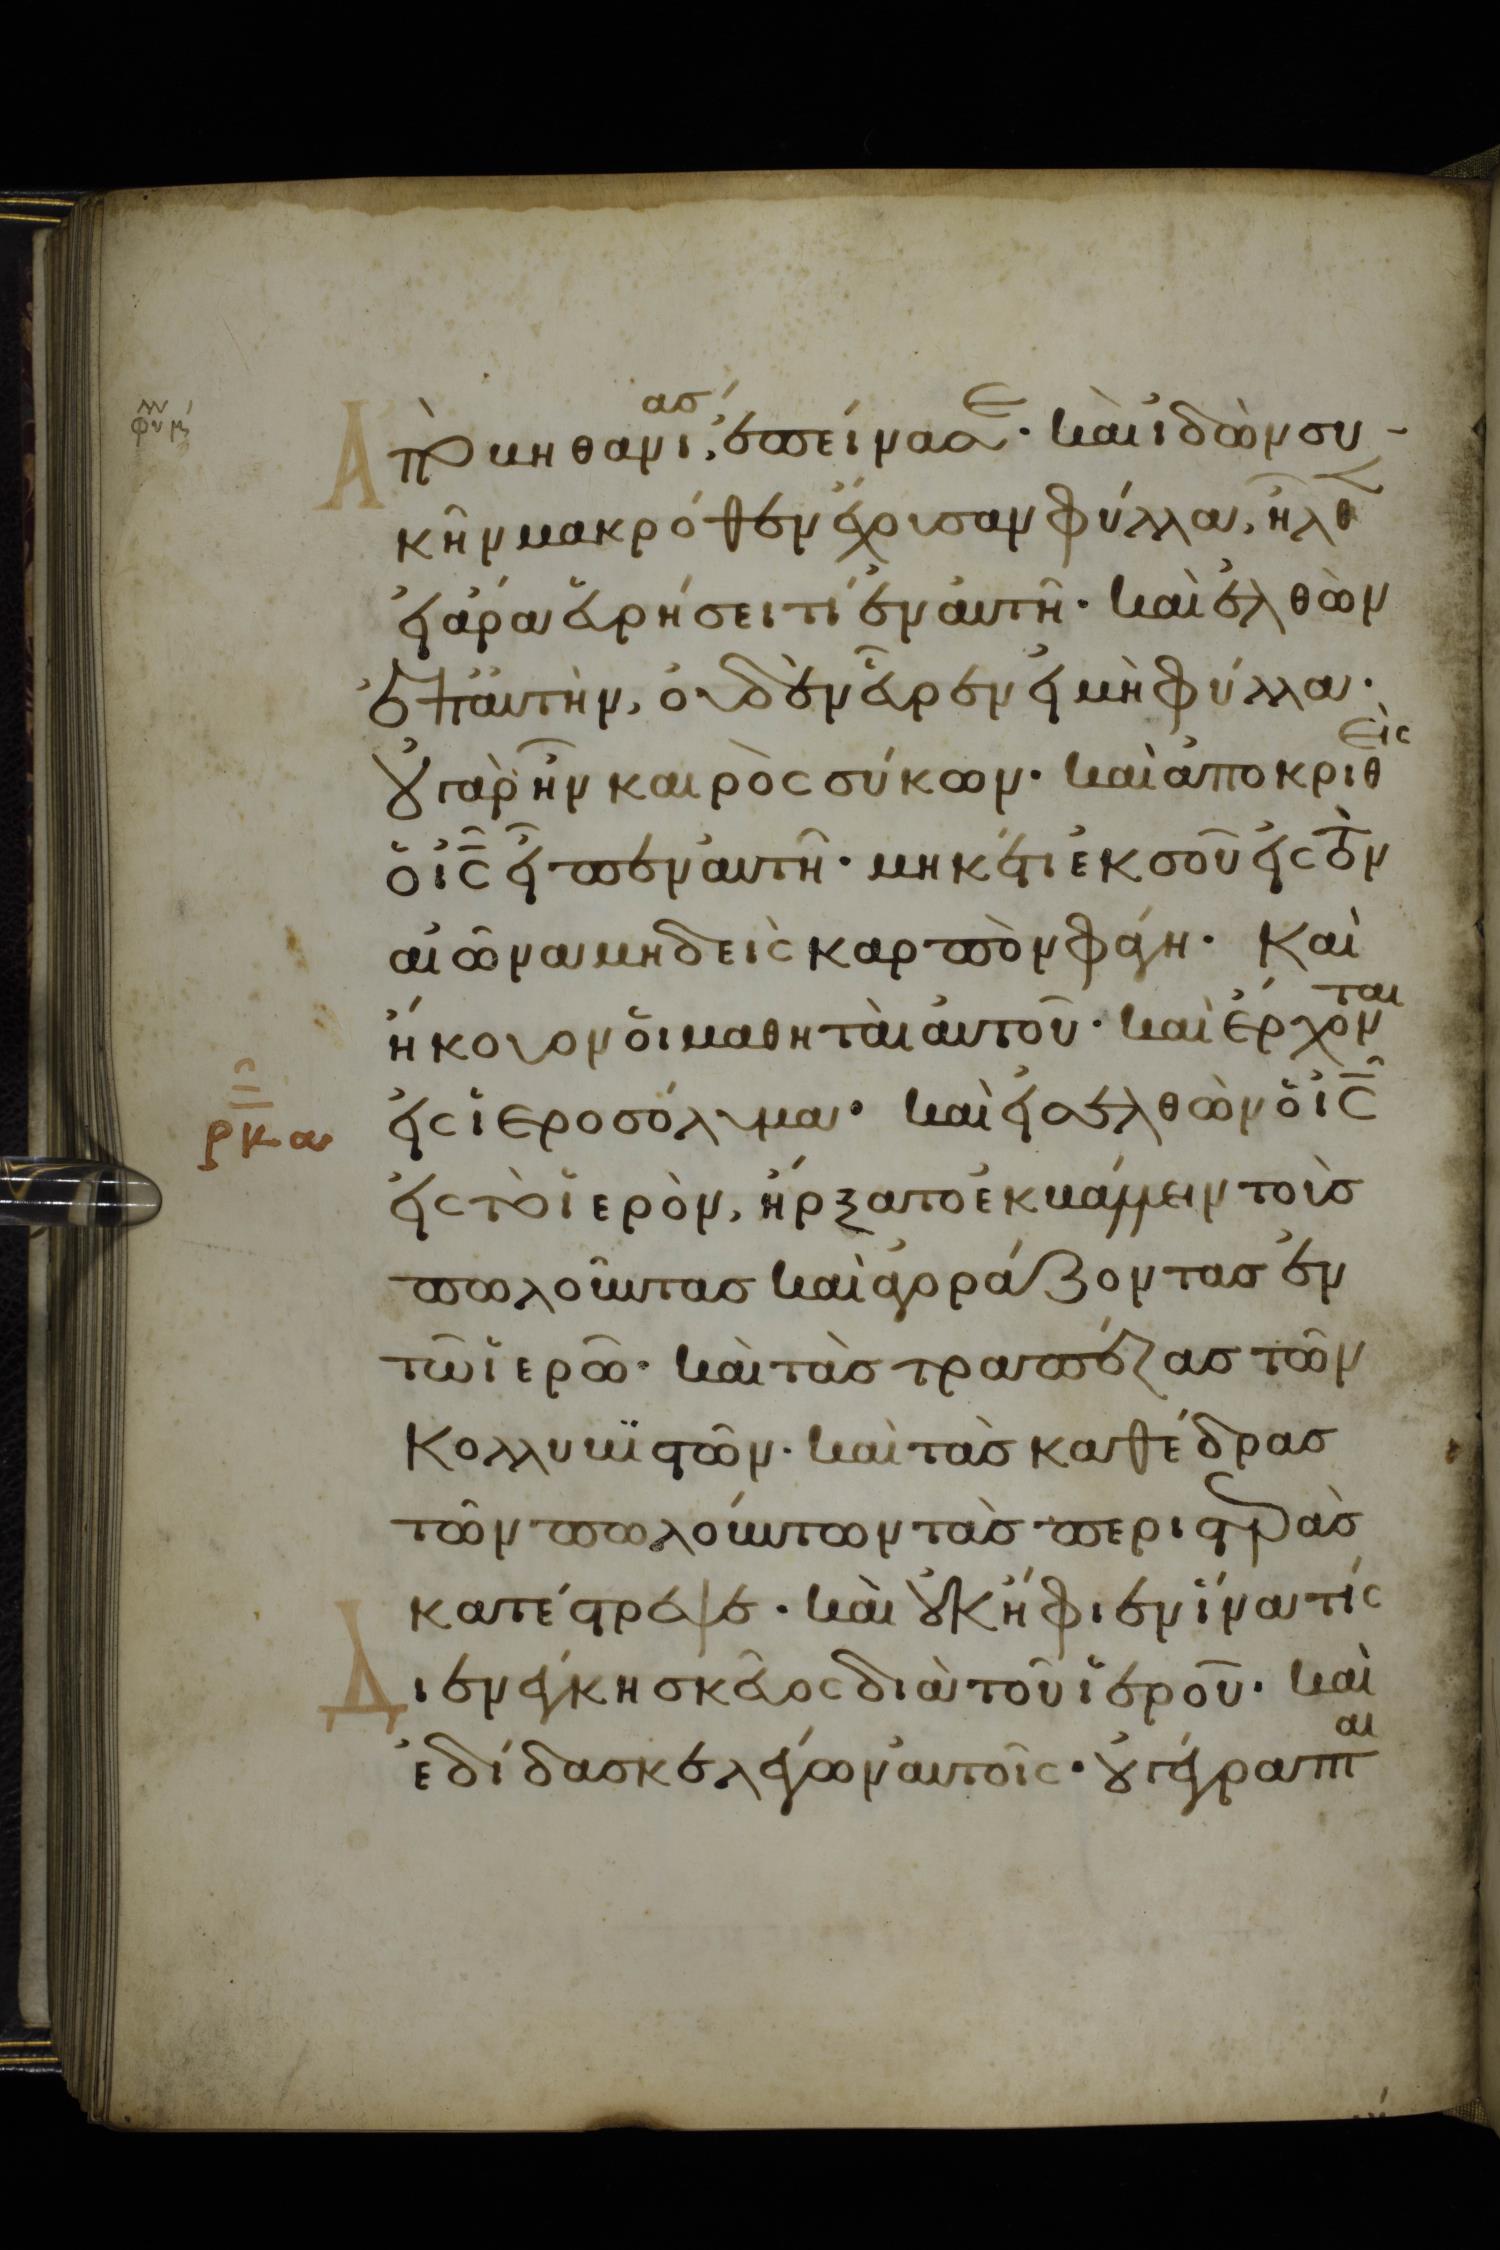 Ἀπὸ βηθανίασ, ἐπείνασεν· καὶ ἰδὼν συ-
κῆν μακρόθεν ἔχουσαν φύλλα, ἦλθεν
εἰ ἄρα εὑρήσει τι ἐν αὐτῆ· καὶ ἐλθὼν
ἐπ' αὐτὴν, οὐδὲν εὗρεν εἰ μὴ φύλλα·
οὐ γὰρ ἦν καιρὸς σύκων· καὶ ἀποκριθεὶς
ὁ ἰς̅ εἶπεν αὐτῆ· μηκέτι ἐκ σοῦ εἰς τὸν
αἰῶνα μηδεὶς καρπὸν φάγη· Καὶ
ἤκουον οἱ μαθηταὶ αὐτοῦ· καὶ ἔρχονται
ρκα
εἰς ἱεροσόλυμα· καὶ εἰσελθὼν ὁ ἰς̅
εἰς τὸ ἱερὸν, ἤρξατο ἐκβάλλειν τοὺσ
πωλοῦντασ καὶ ἀγοράζοντασ ἐν
τῶ ἱερῶ· καὶ τὰσ τραπέζασ τῶν
Κολλυβϊστῶν· καὶ τὰσ καθέδρασ
τῶν πωλούντων τὰσ περιστερὰσ
κατέστρεψε· καὶ οὐκ ἤφιεν ἵνα τίς
Διενέγκη σκεῦος διὰ τοῦ ἱεροῦ· καὶ
ἐδίδασκε λέγων αὐτοῖς· οὐ γέγραπται